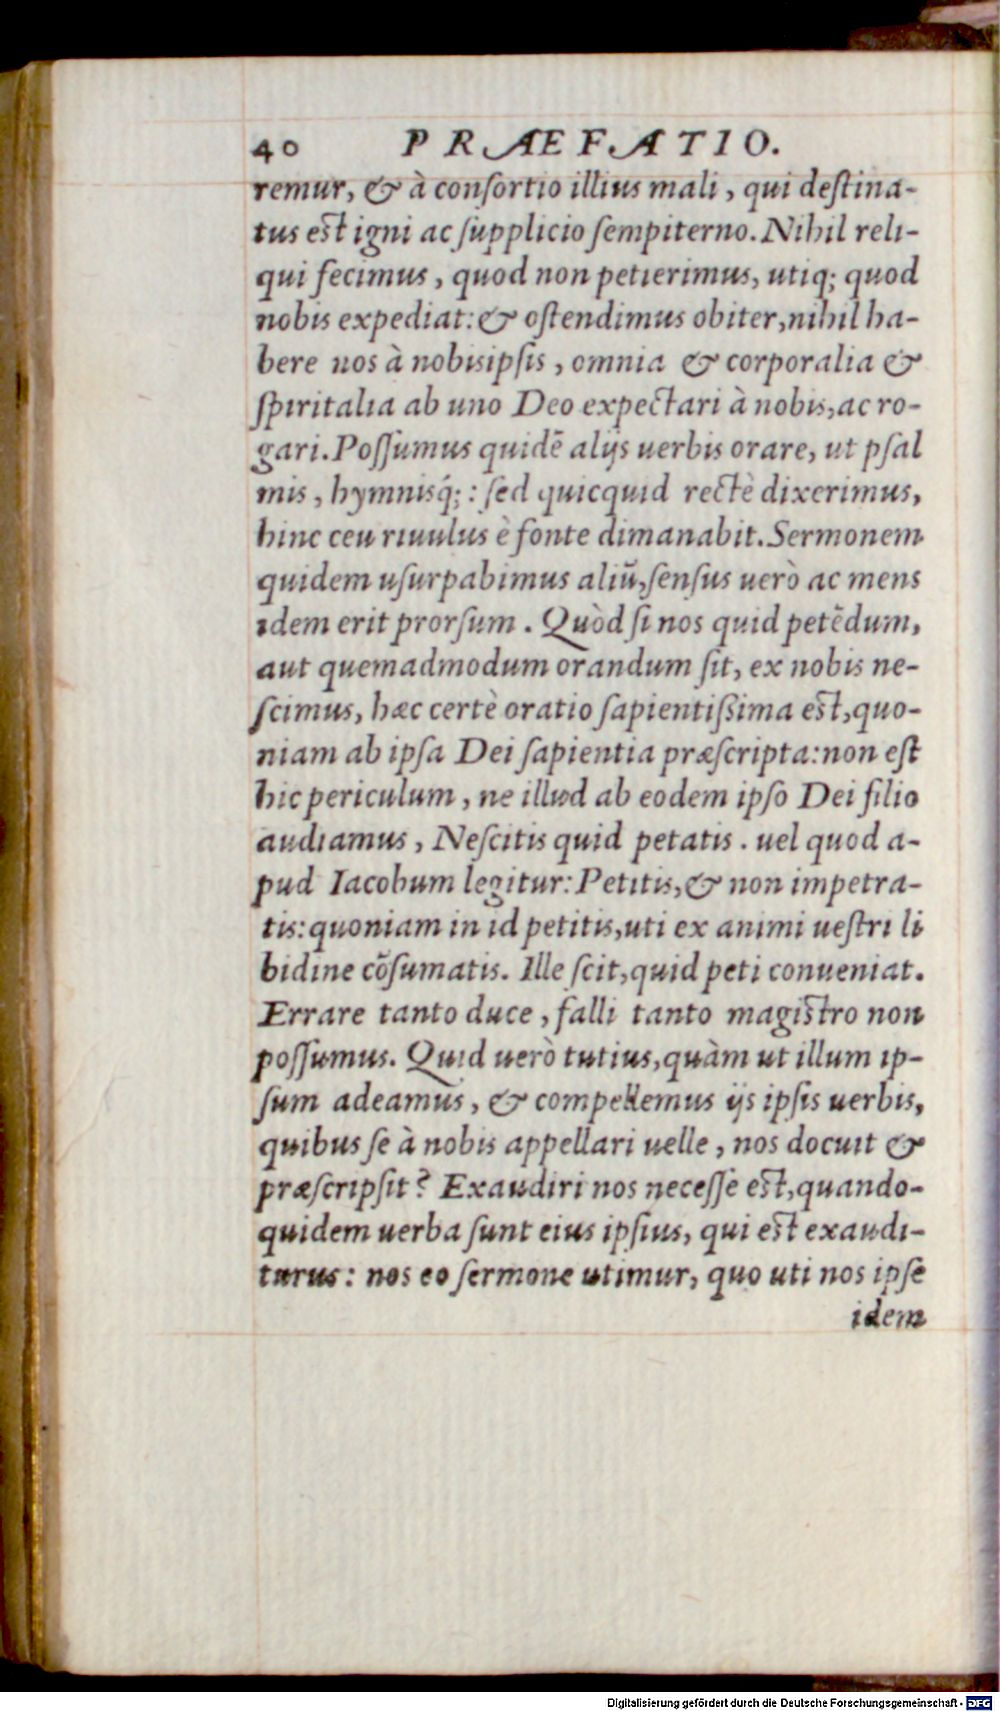 40 PRÆFATIO.
remur, & à conſortio illius mali, qui deſtina-
tus est igni ac ſupplicio ſempiterno. Nihil reli-
qui fecimus, quod non petierimus, utiq; quod
nobis expediat: & oſtendimus obiter, nihil ha-
bere nos à nobisipſis, omnia & corporalia &
ſpiritalia ab uno Deo expectari à nobis, ac ro-
gari. Poſſumus quidē alijs uerbis orare, ut pſal
mis, hymnisq́;: ſed quicquid rectè dixerimus,
hinc ceu riuulus è fonte dimanabit. Sermonem
quidem uſurpabimus aliū, ſenſus uerò ac mens
idem erit prorſum. Quòd ſi nos quid petēdum,
aut quemadmodum orandum ſit, ex nobis ne-
ſcimus, hæc certè oratio ſapientißima est, quo-
niam ab ipſa Dei ſapientia præſcripta: non eſt
hic periculum, ne illud ab eodem ipſo Dei filio
audiamus, Neſcitis quid petatis. uel quod a-
pud Iacobum legitur: Petitis, & non impetra-
tis: quoniam in id petitis, uti ex animi ueſtri li
bidine cōſumatis. Ille ſcit, quid peti conueniat.
Errare tanto duce, falli tanto magistro non
poſſumus. Quid uerò tutius, quàm ut illum ip-
ſum adeamus, & compellemus ijs ipſis uerbis,
quibus ſe à nobis appellari uelle, nos docuit &
præſcripſit? Exaudiri nos neceſſe est, quando-
quidem uerba ſunt eius ipſius, qui est exaudi-
turus: nos eo ſermone utimur, quo uti nos ipſe
idem
Digitalisierung gefördert durch die Deutsche Forschungsgemeinschaft - DFG